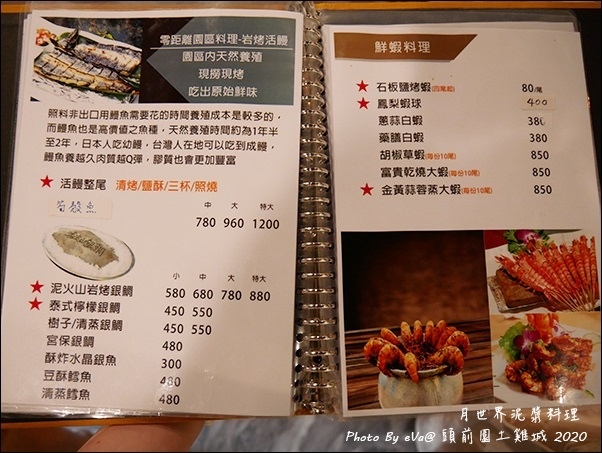 零距離園區料理-岩烤活鰻
園區內天然養殖
現撈現烤
吃出原始鮮味
照料非出口用鰻魚需要花的時間養殖成本是較多的,
而鰻魚也是高價值之魚種,天然養殖時間約為1年半
至2年,日本人吃幼鰻,台灣人在地可以吃到成鰻,
鰻魚養越久肉質越Q彈,膠質也會更加豐富
★ 活鰻整尾 清烤/鹽酥/三杯/照燒
中 大 特大
780 960 1200
小 中 大 特大
★ 泥火山岩烤銀鯛 580 680 780 880
★ 泰式檸檬銀鯛 450 550
樹子/清蒸銀鯛 450 550
宮保銀鯛 480
酥炸水晶銀魚 300
豆酥鱈魚 480
清蒸鱈魚 480
鮮蝦料理
★ 石板鹽烤蝦(四尾起) 80/尾
★ 鳳梨蝦球 400
蔥蒜白蝦 380
藥膳白蝦 380
胡椒草蝦(每份10尾) 850
富貴乾燒大蝦(每份10尾) 850
★ 金黃蒜蓉蒸大蝦(每份10尾) 850
月世界泥漿料理
Photo By eVa@ 頭前園土雞城 2020